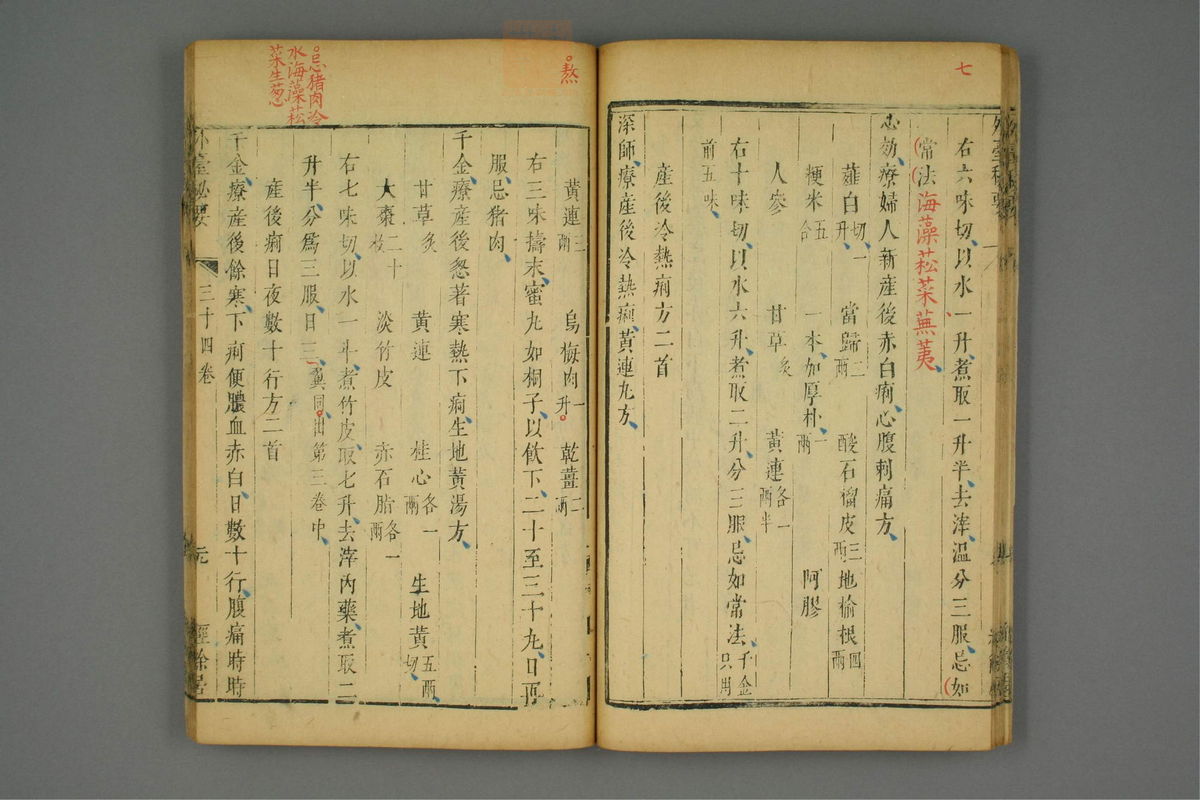 七
右六味切以水一升煮取一升半去滓溫分三服忌如
常法海藻菘菜蕪荑
必効療婦人新產後赤白痢心腹刺痛方
薤白切一升 當歸二兩 酸石榴皮三兩 地榆根四兩
粳米五合 一本加厚朴一兩
人參 甘草炙 黃連各一兩半 阿膠
右十味切以水六升煮取二升分三服忌如常法千金只用
前五味
產後冷熱痢方二首
深師療產後冷熱痢黃連丸方
熬
黃連三兩 烏梅肉一升 乾薑二兩
右三味擣末蜜丸如桐子以飲下二十至三十丸日再
服忌猪肉
千金療產後忽著寒熱下痢生地黃湯方
甘草炙 黃連 桂心各一兩 生地黃五兩切
大棗二十枚 淡竹皮 赤石脂各一兩
右七味切以水一斗煮竹皮取七升去滓內藥煮取二
升半分爲三服日三翼同出第三卷中
忌猪肉冷
水海藻菘
菜生葱
產後痢日夜數十行方二首
千金療產後餘寒下痢便膿血赤白日數十行腹痛時時
外臺秘要 三十四卷 元 經餘居